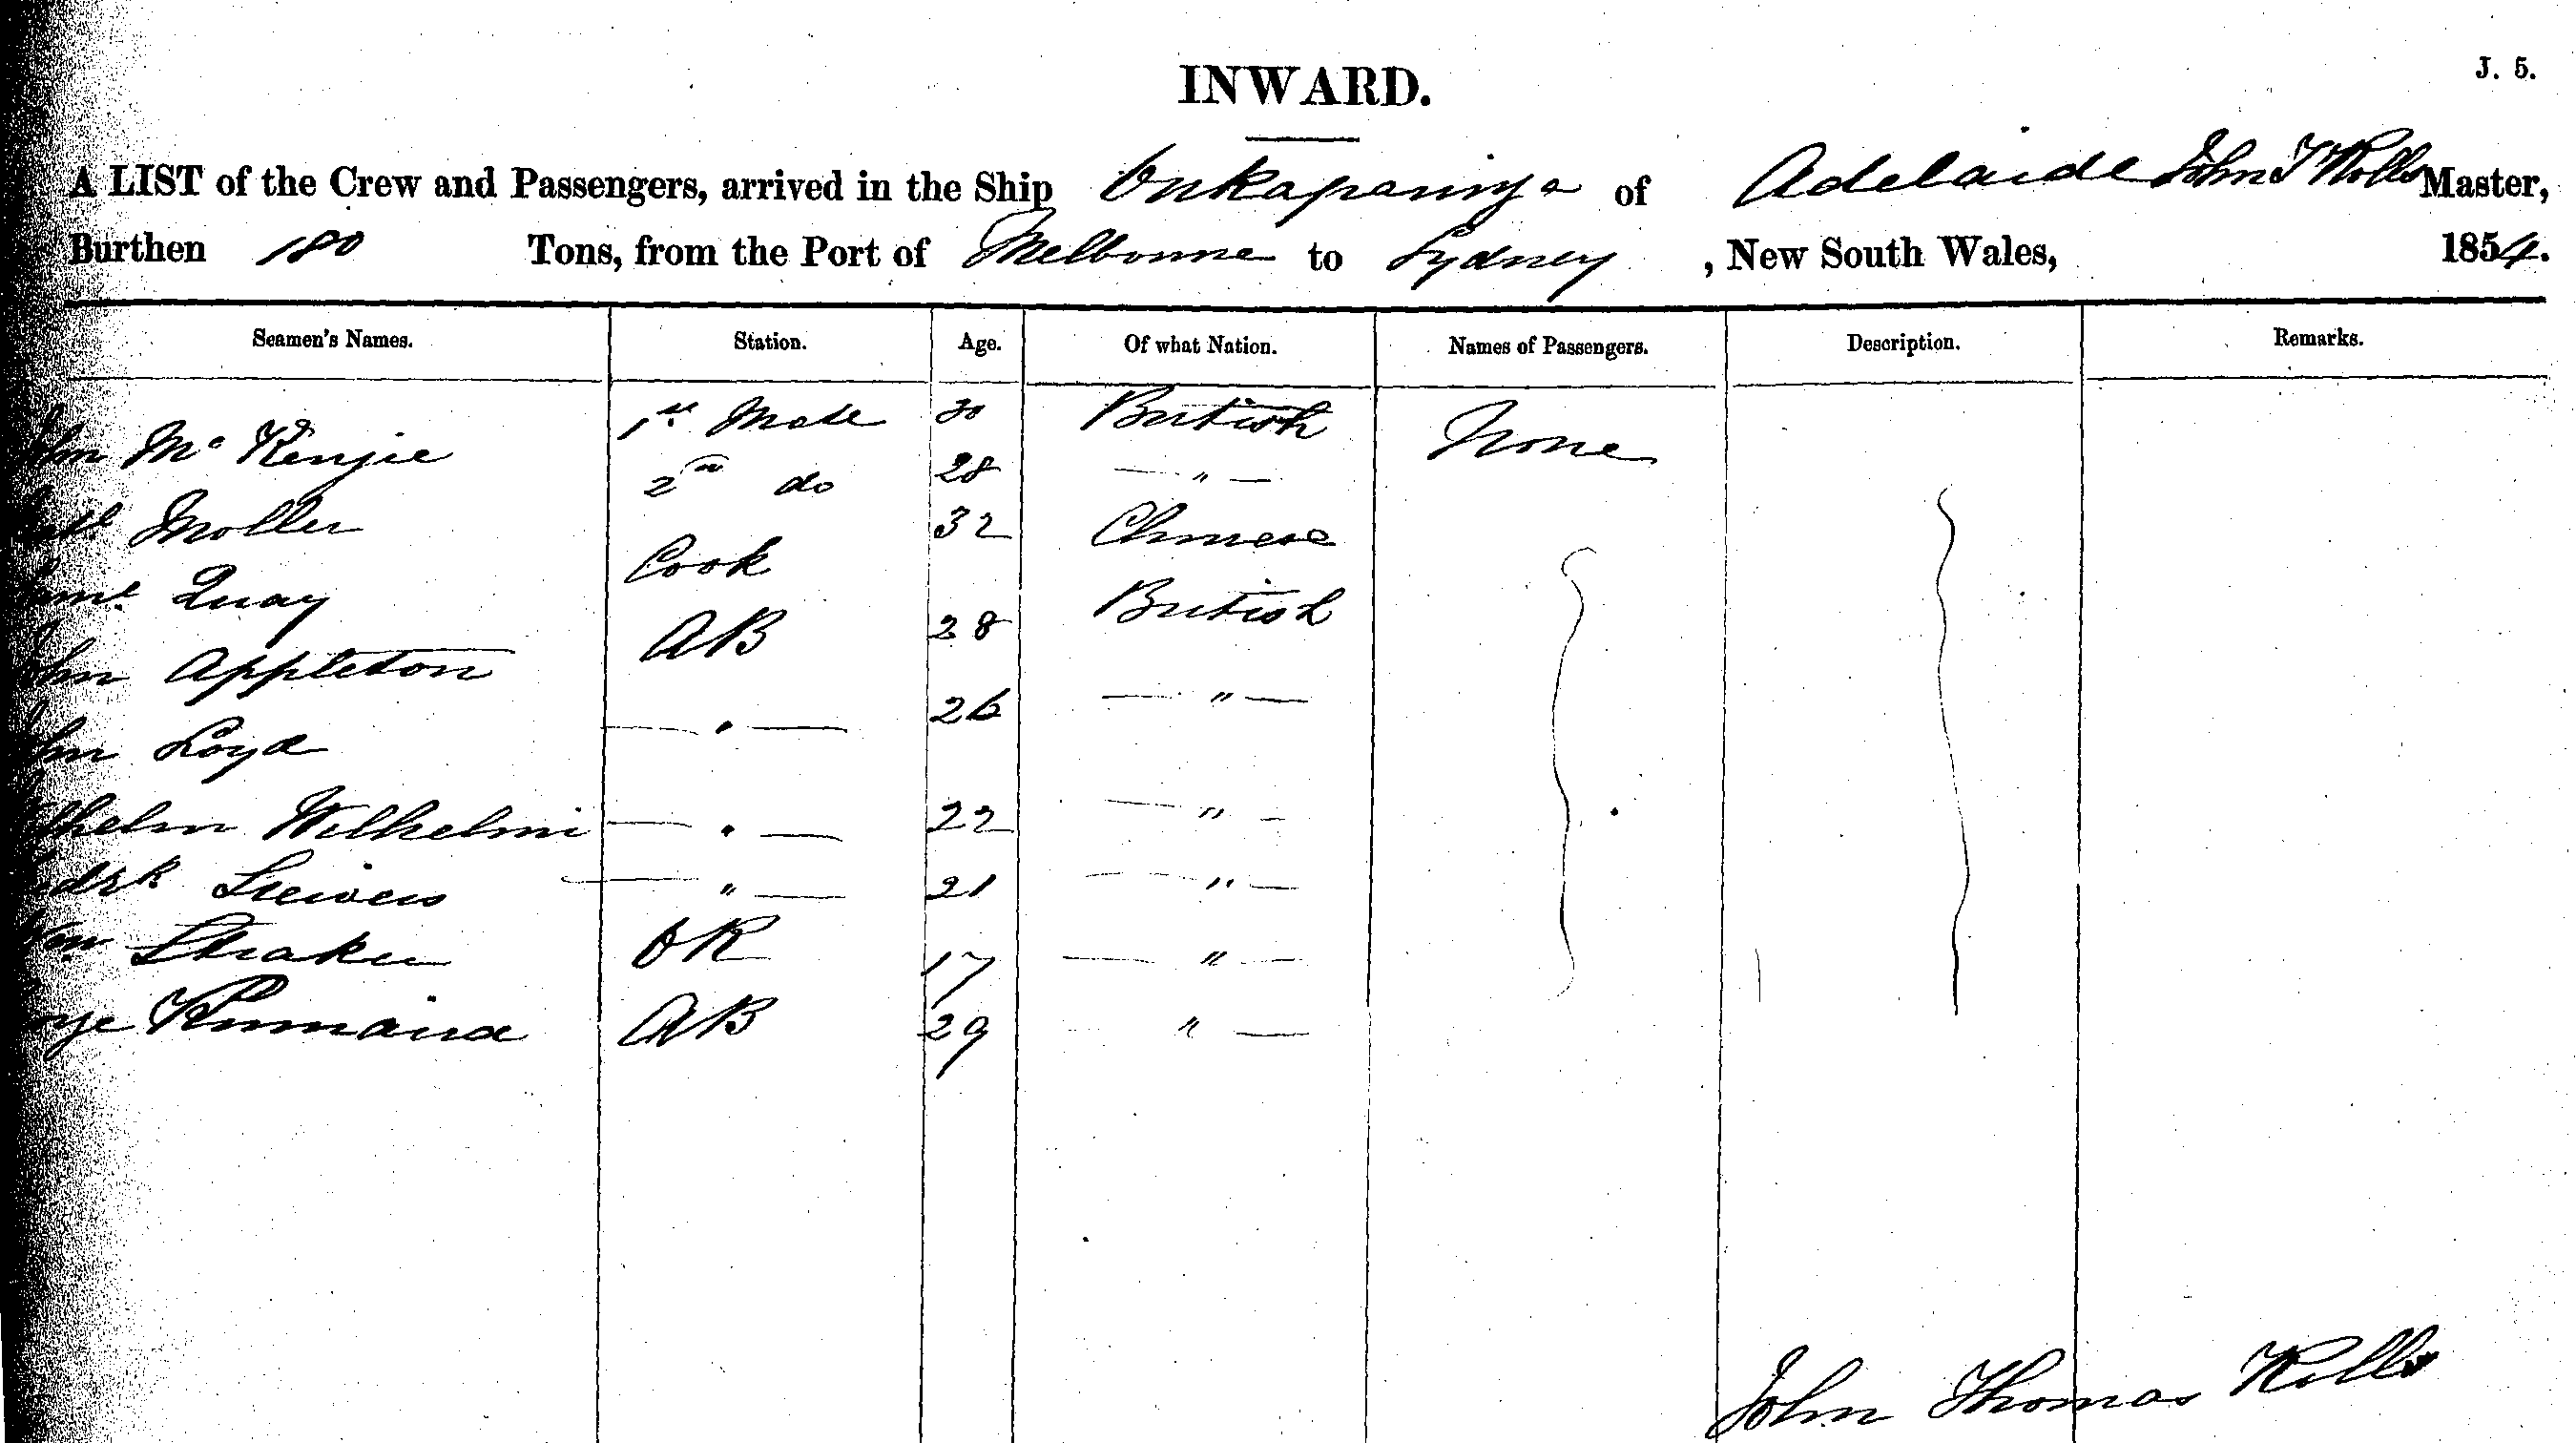 INWARD.
J. 5.
A LIST of the Crew and Passengers, arrived in the Ship Onkaparinga of Adelaide John T Rolls Master,
Burthen 180 Tons, from the Port of Melbourne to Sydney, New South Wales, 1854.
Seamen's Names. Station. Age. Of what Nation. Names of Passengers. Description. Remarks.
John Mc Kenzie 1st Mate 30 British None
Moller 2nd do 28 — " —
Quay Cook 32 Chinese
John Appleton AB 28 British
John Loyd — " — 26 — " —
Wilhelm Wilhelmi — " — 22 — " —
— " — 21 — " —
Wm Straker OR 17 — " —
AB 29 " —
John Thomas Rolls